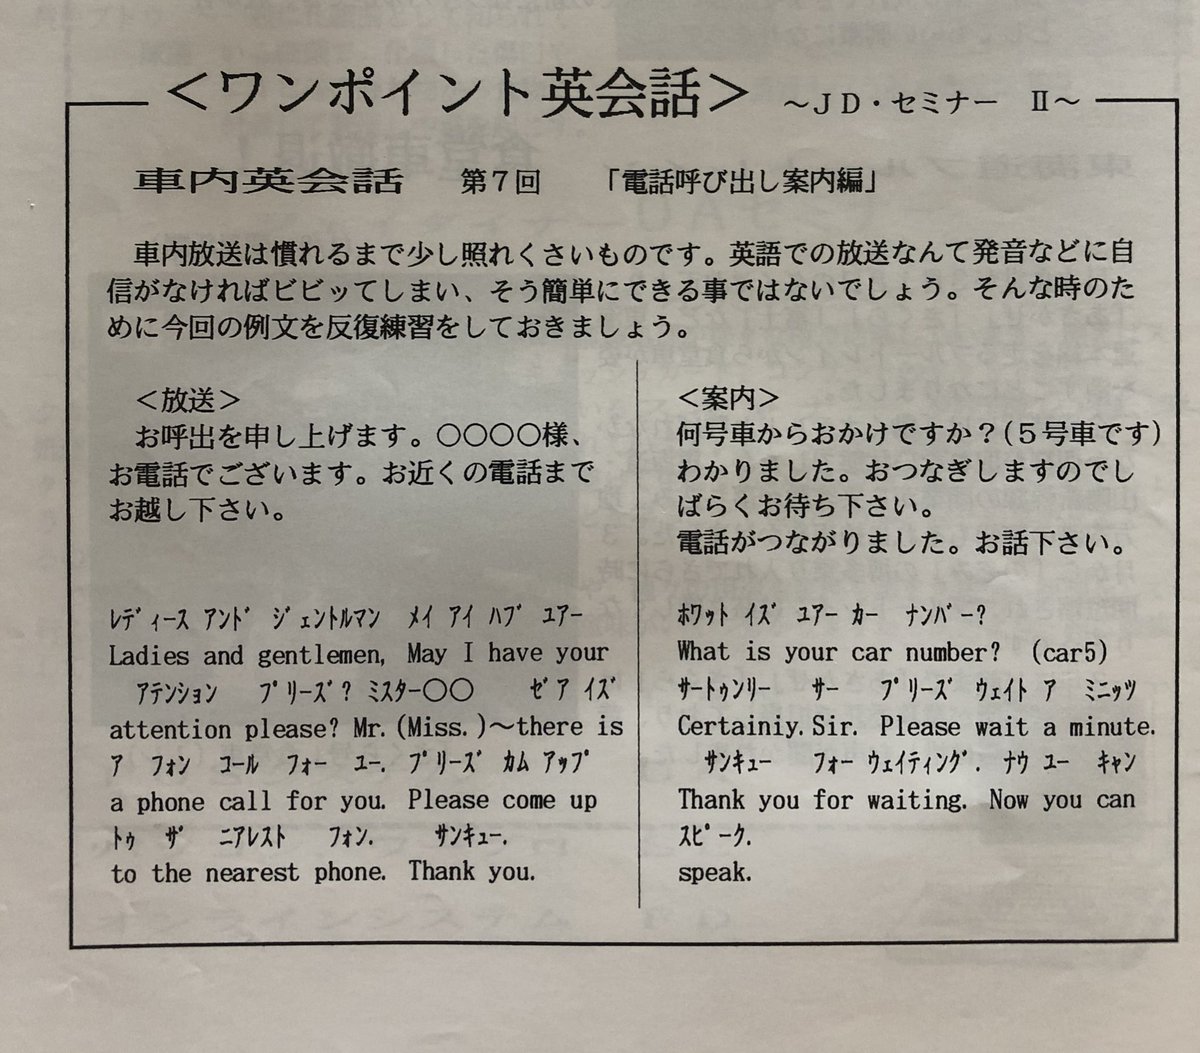 ＜ワンポイント英会話＞ ～ＪＤ・セミナー Ⅱ～
車内英会話 第７回 「電話呼び出し案内編」
車内放送は慣れるまで少し照れくさいものです。英語での放送なんて発音などに自
信がなければビビッてしまい、そう簡単にできる事ではないでしょう。そんな時のた
めに今回の例文を反復練習をしておきましょう。
＜放送＞
お呼出を申し上げます。○○○○様、
お電話でございます。お近くの電話まで
お越し下さい。
ﾚﾃﾞｨｰｽ ｱﾝﾄﾞ ｼﾞｪﾝﾄﾙﾏﾝ ﾒｲ ｱｲ ﾊﾌﾞ ﾕｱｰ
Ladies and gentlemen, May I have your
ｱﾃﾝｼｮﾝ ﾌﾟﾘｰｽﾞ? ﾐｽﾀｰ○○ ｾﾞｱ ｲｽﾞ
attention please? Mr.(Miss.)～there is
ｱ ﾌｫﾝ ｺｰﾙ ﾌｫｰ ﾕｰ. ﾌﾟﾘｰｽﾞ ｶﾑ ｱｯﾌﾟ
a phone call for you. Please come up
ﾄｩ ｻﾞ ﾆｱﾚｽﾄ ﾌｫﾝ. ｻﾝｷｭｰ.
to the nearest phone. Thank you.
＜案内＞
何号車からおかけですか？(５号車です)
わかりました。おつなぎしますのでし
ばらくお待ち下さい。
電話がつながりました。お話下さい。
ﾎﾜｯﾄ ｲｽﾞ ﾕｱｰ ｶｰ ﾅﾝﾊﾞｰ?
What is your car number? (car5)
ｻｰﾄｩﾝﾘｰ ｻｰ ﾌﾟﾘｰｽﾞ ｳｪｲﾄ ｱ ﾐﾆｯﾂ
Certainiy.Sir. Please wait a minute.
ｻﾝｷｭｰ ﾌｫｰ ｳｪｲﾃｨﾝｸﾞ. ﾅｳ ﾕｰ ｷｬﾝ
Thank you for waiting. Now you can
ｽﾋﾟｰｸ.
speak.